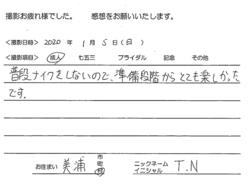 撮影お疲れ様でした。　感想をお願いいたします。
＜撮影日時＞ 2020 年 1 月 5 日(日)
＜撮影項目＞ 成人 七五三 ブライダル 記念 その他
普段メイクをしないので、準備段階からとても楽しかった
です。
お住まい 美浦 市 町 村 ニックネーム イニシャル T.N